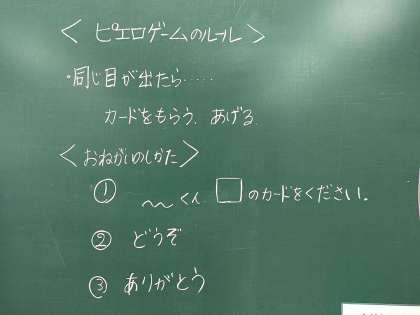 ＜ ピエロゲームのルール ＞
・同じ目が出たら‥‥‥
カードをもらう、あげる
＜おねがいのしかた＞
① 〜〜くん □のカードをください。
② どうぞ
③ ありがとう